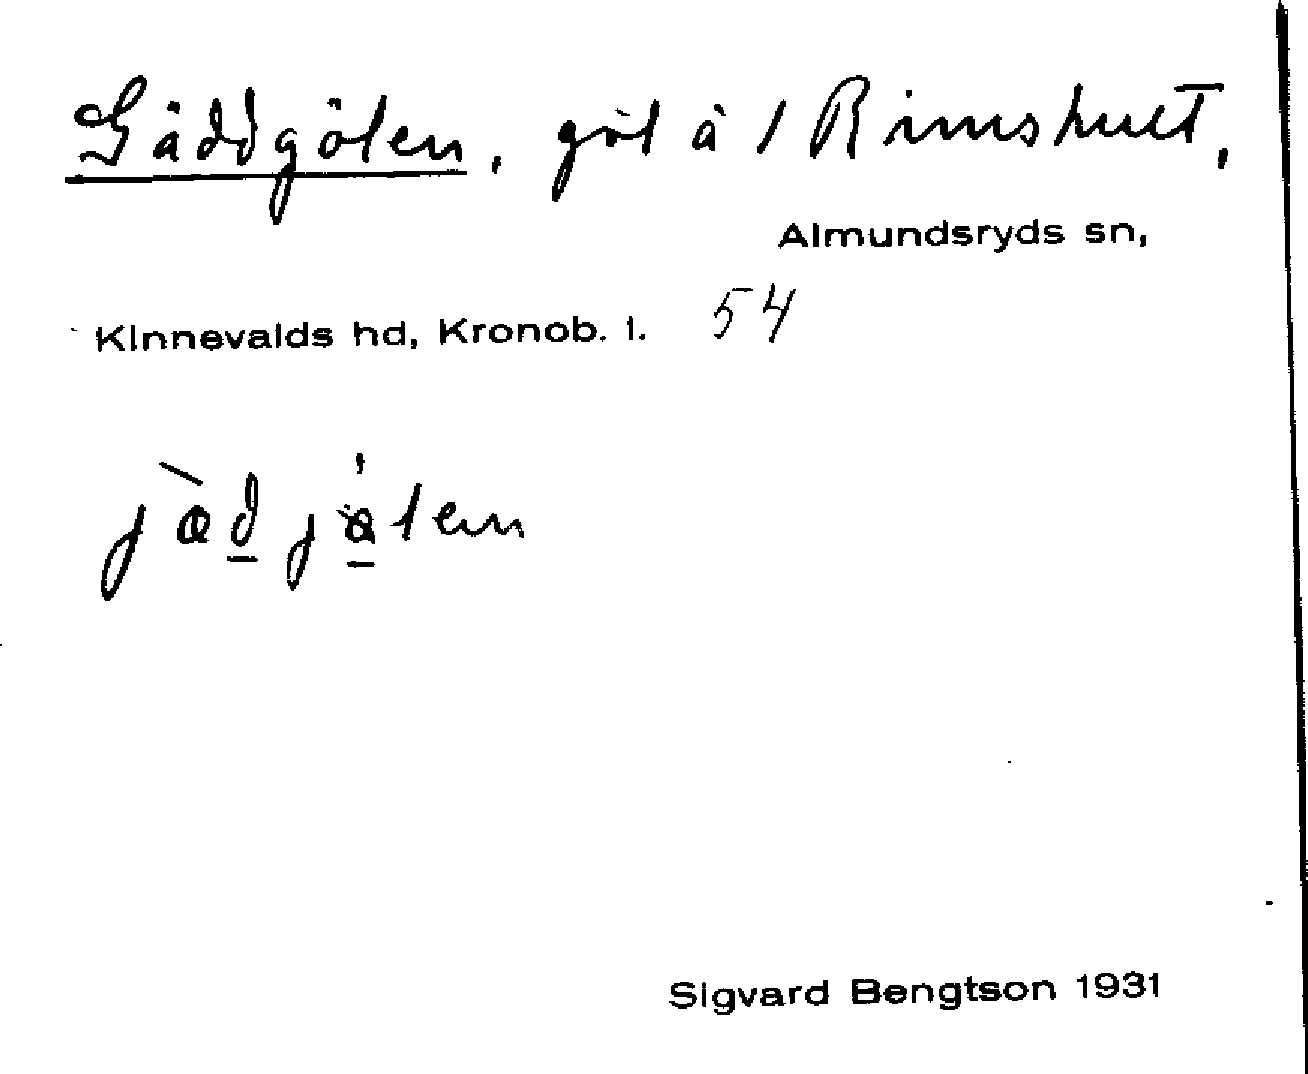 Gäddgölen, göl å 1 Rimshult,
Almundsryds sn,
Kinnevalds hd, Kronob. l. 54
Sigvard Bengtson 1931